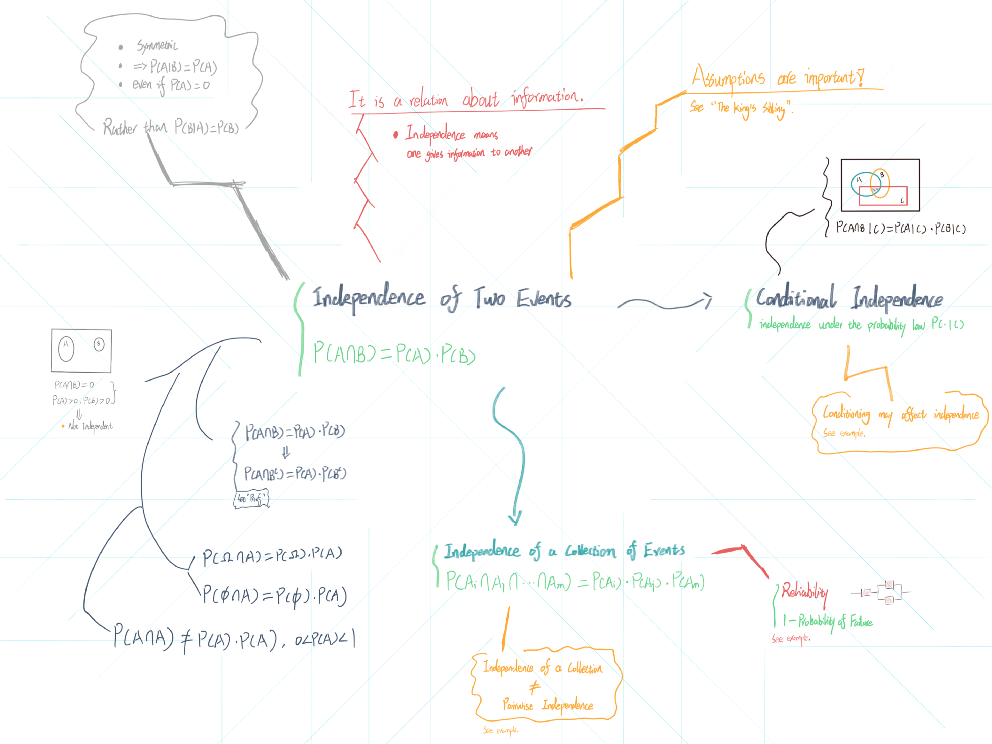 • Symmetric
• => P(A|B)=P(A)
• even if P(A)=0
Rather than P(B|A)=P(B)
It is a relation about information.
• Independence means
one gives information to another
Assumptions are important!
See "The King's Sibling".
A B
C
P(A∩B|C)=P(A|C)·P(B|C)
Independence of Two Events
P(A∩B)=P(A)·P(B)
Conditional Independence
independence under the probability law P(·|C)
Conditioning may affect independence
See example.
A B
P(A∩B)=0
P(A)>0, P(B)>0
⇓
• Not Independent
P(A∩B)=P(A)·P(B)
⇓
P(A∩Bᶜ)=P(A)·P(Bᶜ)
See "Proof"
P(Ω∩A)=P(Ω)·P(A)
P(∅∩A)=P(∅)·P(A)
P(A∩A)≠P(A)·P(A), 0<P(A)<1
Independence of a Collection of Events
P(Ai∩Aj∩···∩Am)=P(Ai)·P(Aj)·P(Am)
Independence of a Collection
≠
Pairwise Independence
See example.
Reliability
1-Probability of Failure
See example.